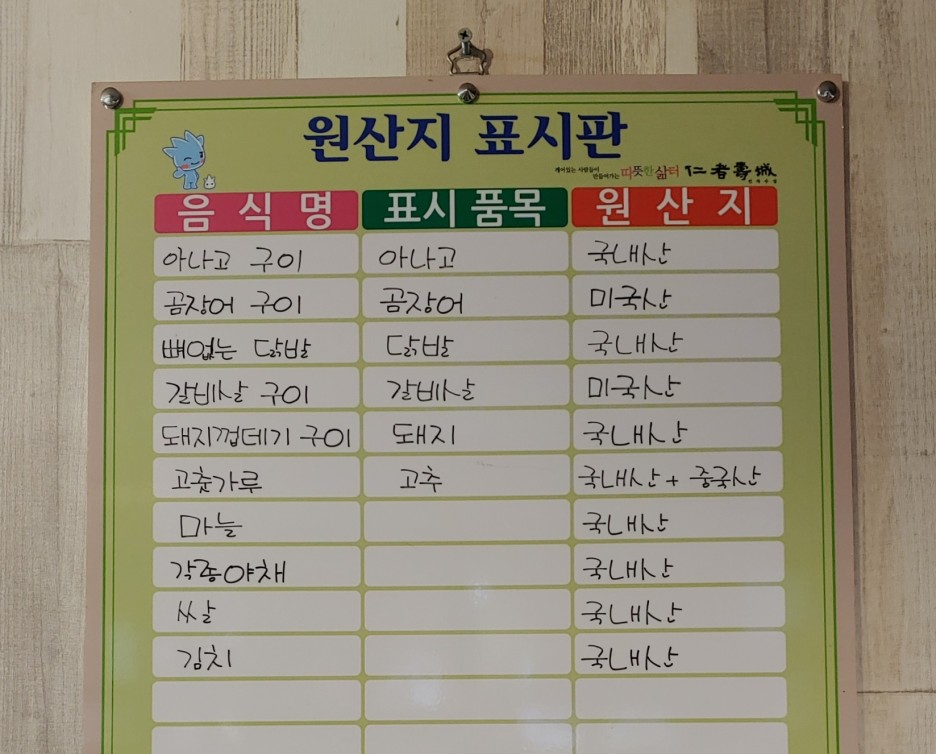 원산지 표시판
깨어있는 사람들이
만들어가는 따뜻한 삶터 仁者壽城
음식명 표시 품목 원산지
아나고 구이 아나고 국내산
곰장어 구이 곰장어 미국산
뼈없는 닭발 닭발 국내산
갈비살 구이 갈비살 미국산
돼지껍데기 구이 돼지 국내산
고춧가루 고추 국내산 + 중국산
마늘 국내산
각종야채 국내산
쌀 국내산
김치 국내산